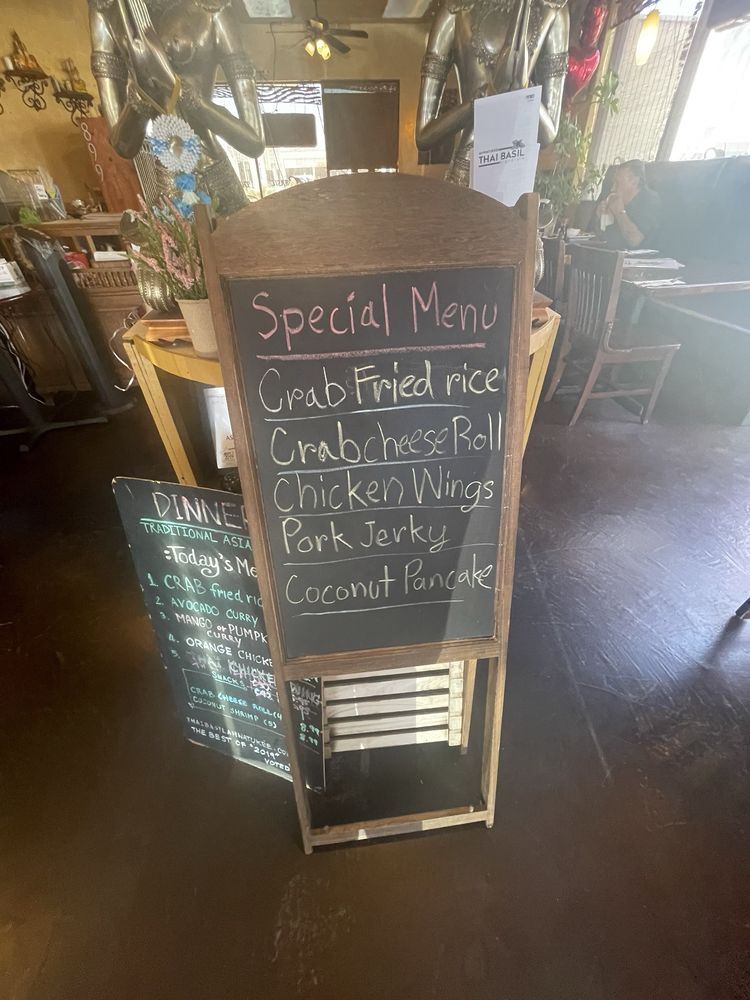 THAI BASIL
Special Menu
Crab Fried rice
Crab cheese Roll
Chicken Wings
Pork Jerky
Coconut Pancake
DINNE
TRADITIONAL ASIA
:Today's Me
1. CRAB fried ric
2. AVOCADO CURRY
3. MANGO or PUMPK
CURRY
4. ORANGE CHICKE
5.
SNACKS
CRAB CHEESE ROLL (4
8.99
COCONUT SHRIMP (5)
8.99
THAIBASILAHWATUKEE.CO
THE BEST OF "2019"
VOTED